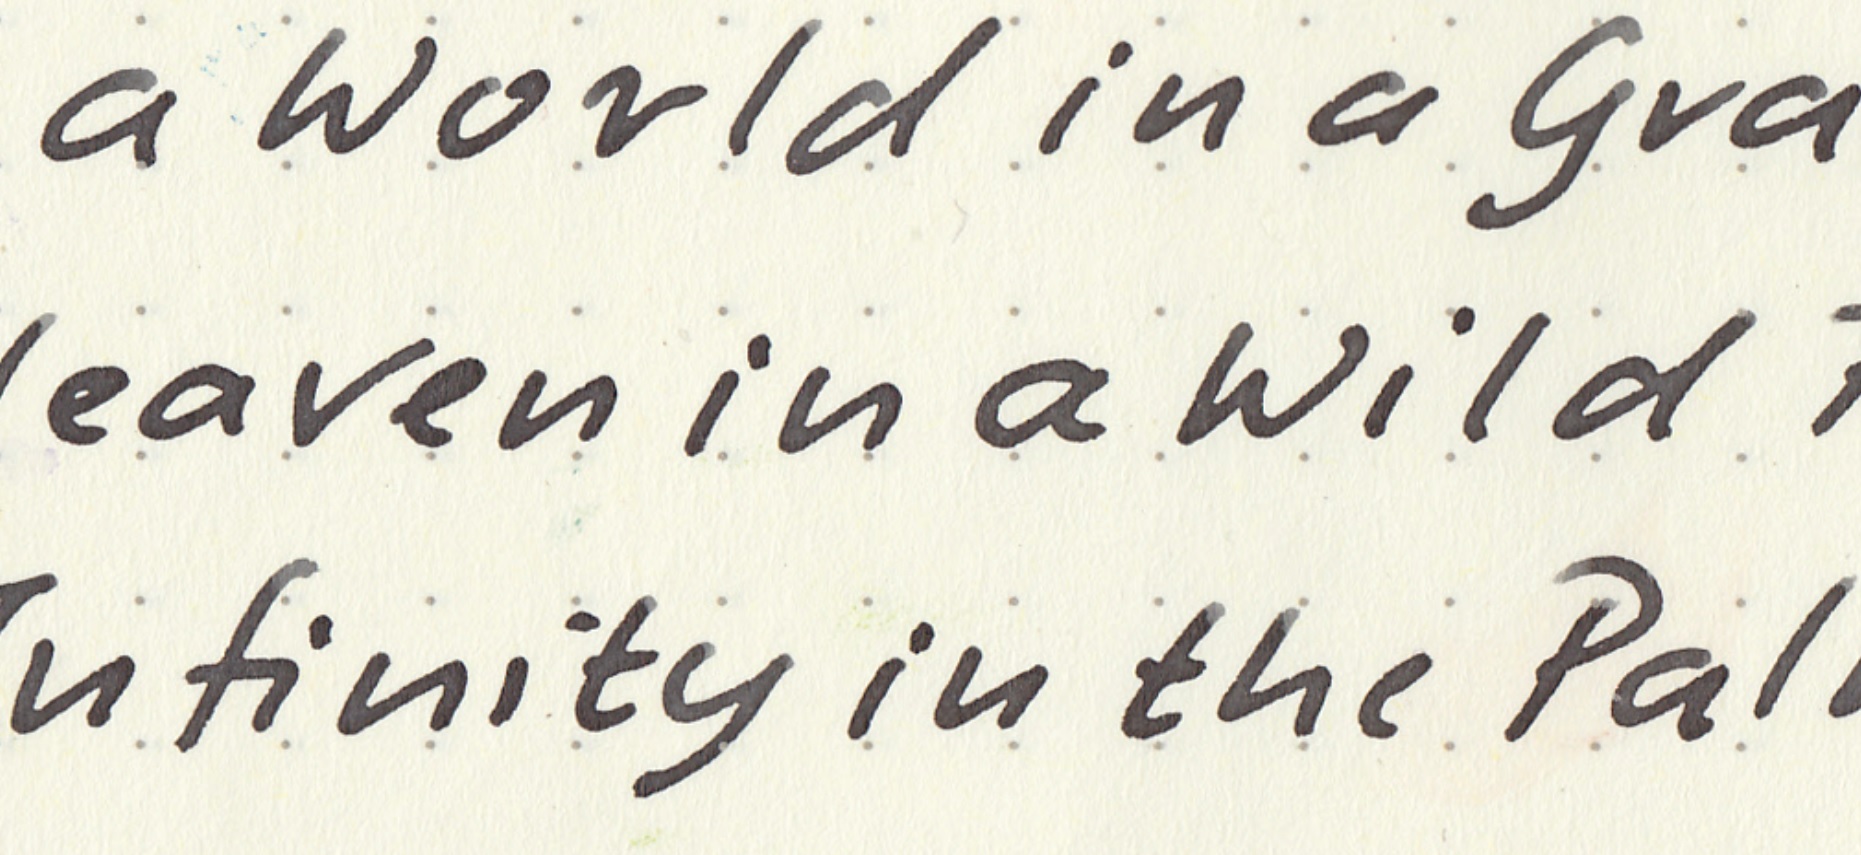 a World in a Gra
Heaven in a Wild F
Infinity in the Pal